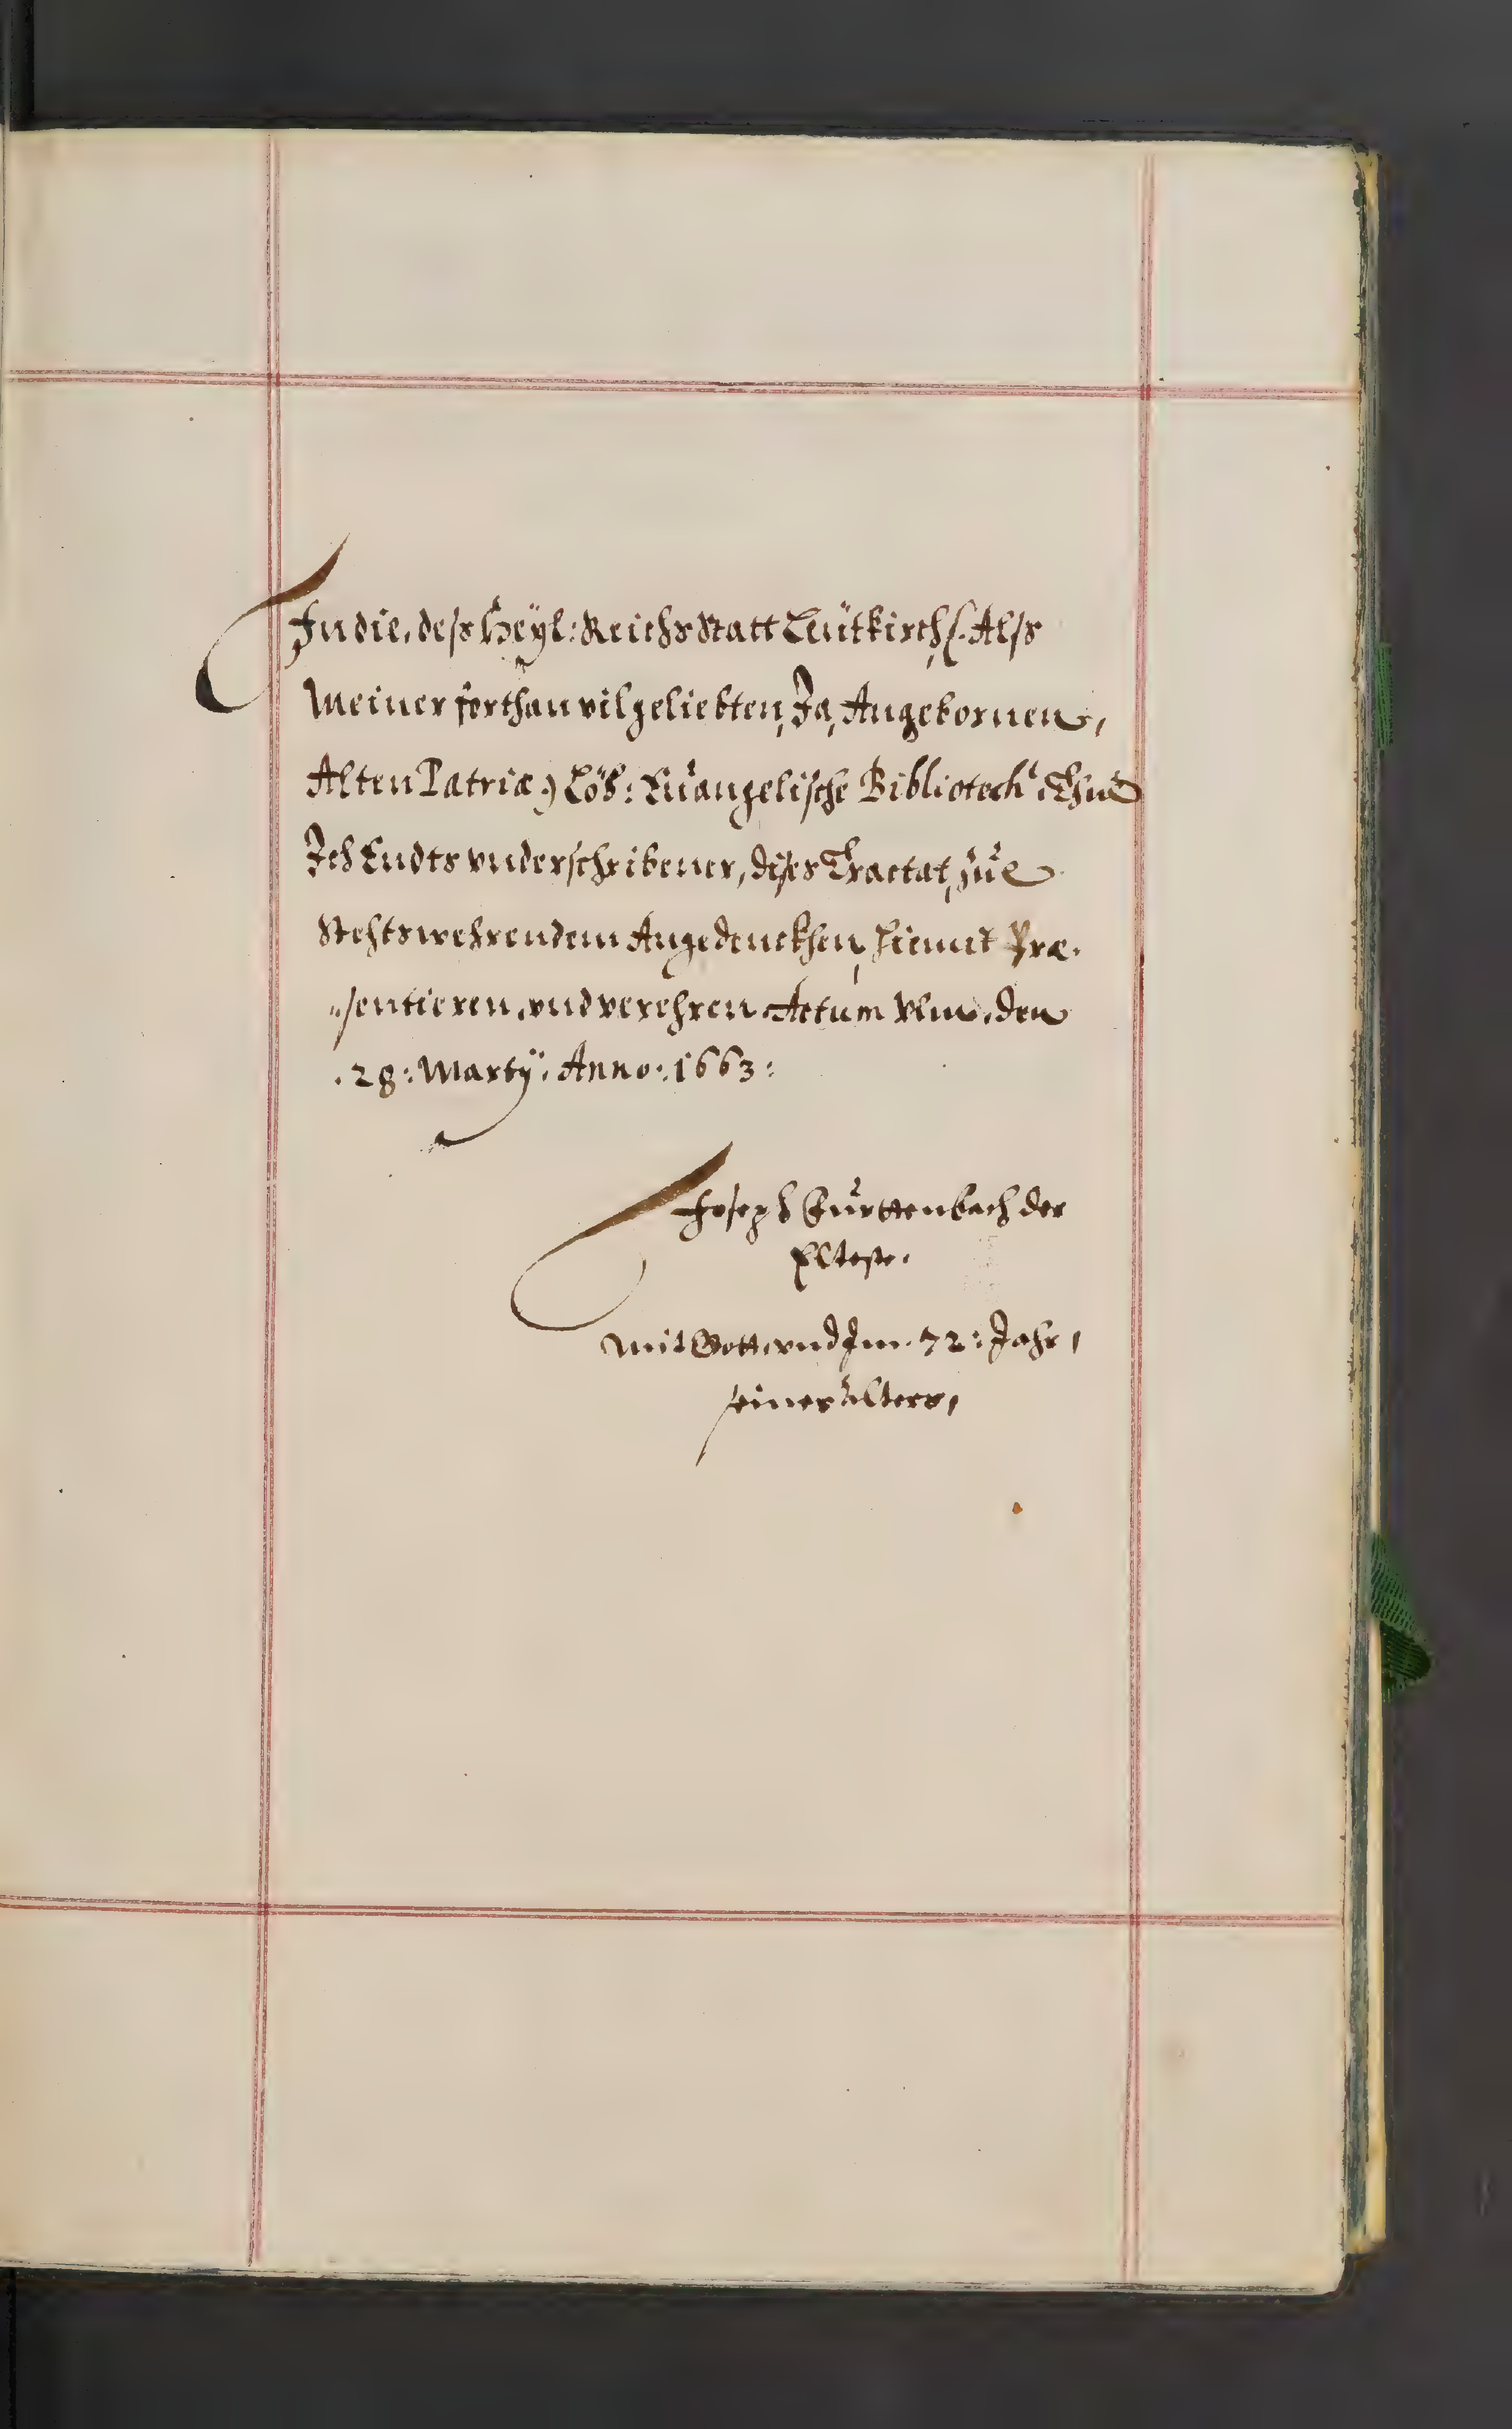 In die, deß Heÿl: Reichs Statt Leütkirch, (. Alß
Meiner forthan vilgeliebten, Ja, Angebornen,
Alten Patriæ.) Löb: Euangelische Bibliotech, Thue
Ich Endts vnderschribener, dises Tractat, zue
Stehtswehrendem Angedenckhen, hiemit Præ-
„sentieren, vnd verehren. Actum Vlm, den
.28: Martÿ. Anno: 1663:
Joseph Furttenbach der
Elteste.
Mit Gott, vnd Im. 72: Jahr,
seines alters,